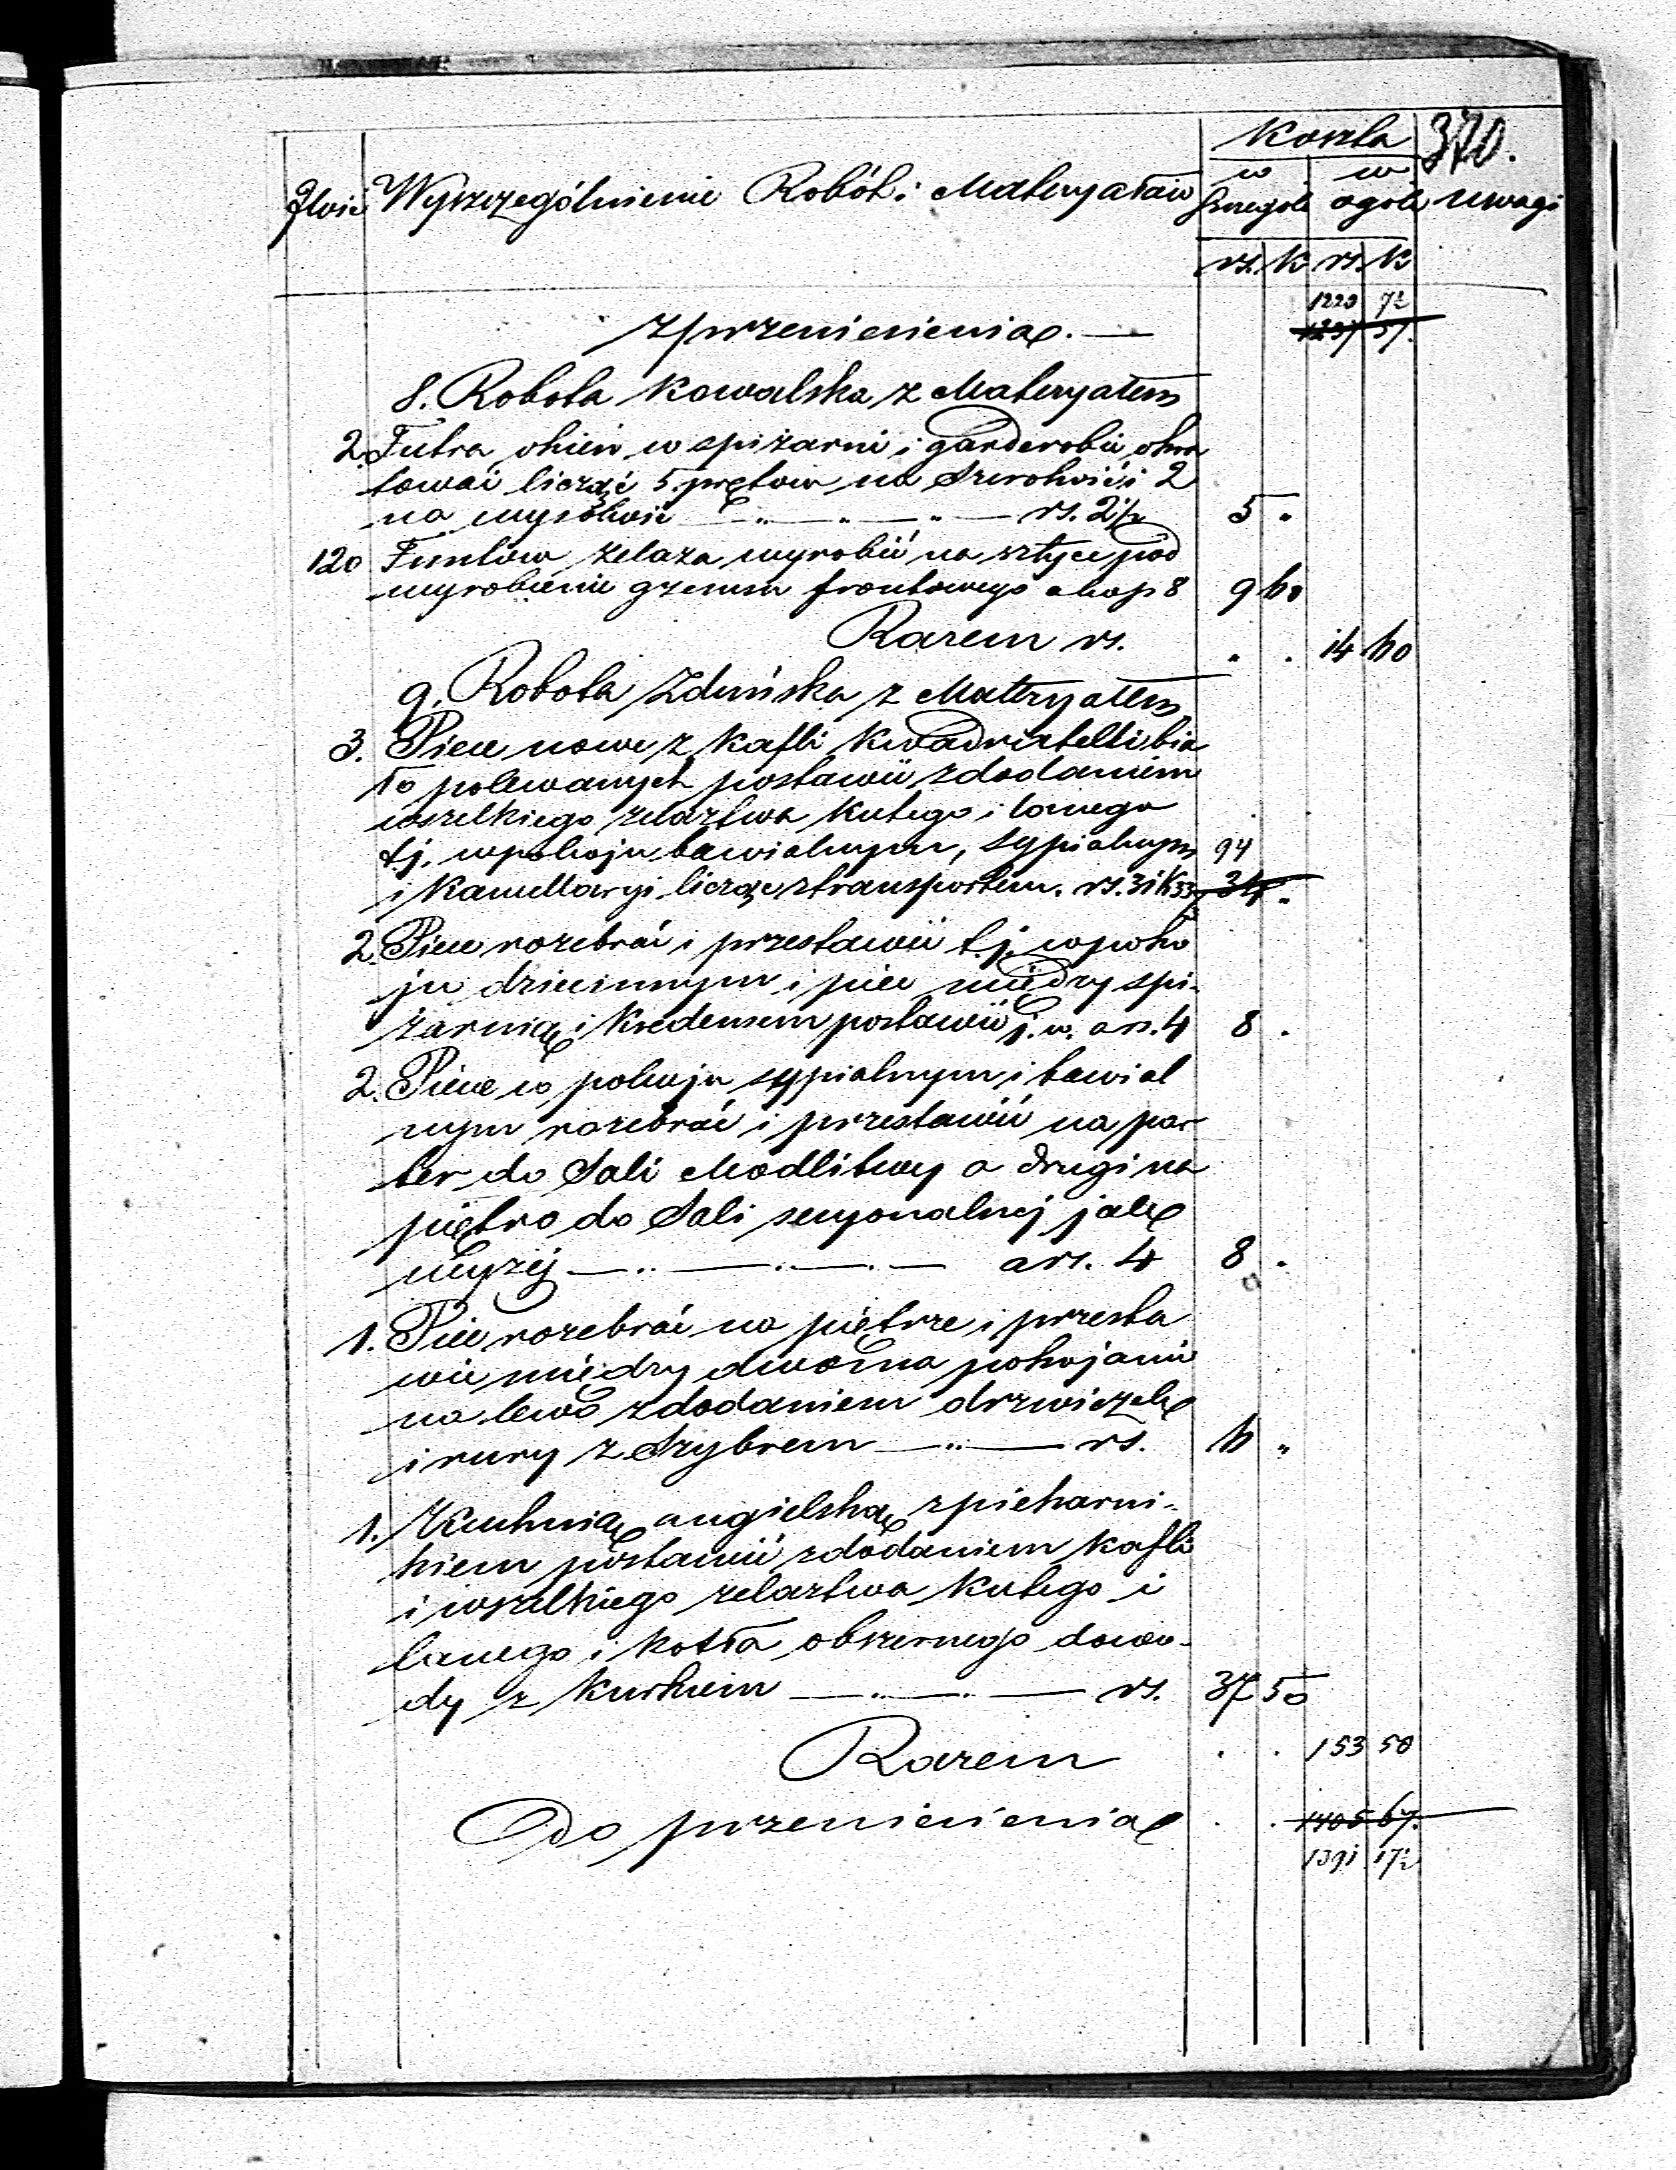 370.
Koszta
Ilość Wyszczególnienie Robót i Materyałów w szczególe w ogóle uwagi
rs. K rs. K
1223 7½
z przeniesienia. — 1237 57.
8. Robota Kowalska z Materyałem
2. Futra okien w spiżarni i garderobie okra
tować licząc 5. prętów na szerokości 2
na wysokość — „ — „ — „ — rs. 2½ 5 „
120 Funtów żelaza wyrobić na sztyce pod
wyrobienie gzemsu frontowego a kop 8 9 60
Razem rs. „ . 14 60
9. Robota Zduńska z Materyałem
3. Piece nowe z Kafli Kwadratelli bia
ło polewanych postawić z dodaniem
wszelkiego żelaztwa Kutego i lanego
tj. w pokoju bawialnym, sypialnym 94
i Kancellaryi licząc z transportem. rs. 31 K 33⅓ 34 „
2. Piece rozebrać i przestawić t.j. w poko
ju dziecinnym i piec między spi-
żarnią i Kredensem postawić j. w. a rs. 4 8 .
2. Piece w pokoju sypialnym i bawial
nym rozebrać i przestawić na par
ter do Sali Modlitwy a drugi na
piętro do Sali sesyonalnej jak
wyżej — .. — . — . — a rs. 4 8 .
1. Piec rozebrać na piętrze i przesta
wić między dwoma pokojami
na lewo z dodaniem drzwiczek
i rury z Szybrem — .. — rs. 6 „
1. Kuchnią angielską z piekarni-
kiem postawić z dodaniem Kafli
i wszelkiego żelaztwa Kutego i
lanego i Kotła obszernego do wo-
dy z Kurkiem — .. — .. — rs. 37 50
Razem . . 153 50
Do przeniesienia . . 1405 67.
1391 17½